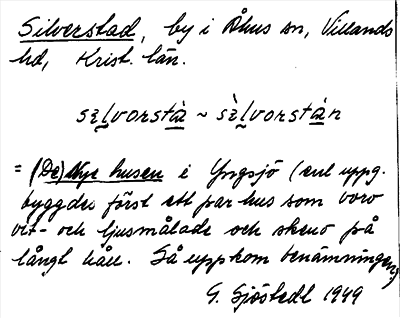 Silverstad, by i Åhus sn, Villands
hd, Krist. län.
sɛlvorstà ~ sɛ̀lvorstán
= (De) Nye husen i Yngsjö (enl uppg.
byggdes först ett par hus som voro
vit- och ljusmålade och skeno på
långt håll. Så uppkom benämningen)
G. Sjöstedt 1949